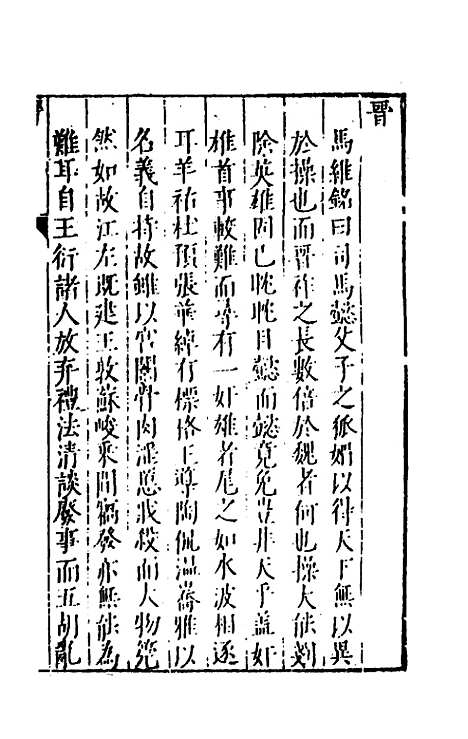 晉
馬維銘曰司馬懿父子之狐媚以得天下無以異
於操也而晋祚之長數倍於魏者何也操大能剗
除英雄固已眈眈目懿而懿竟免豈非天乎盖奸
雄首事較難而尋有一奸雄者尾之如水波相逐
耳羊祜杜預張華綽有標格王導陶侃温嶠雅以
名義自持故雖以宫闈骨肉淫慝戕殺而大物
然如故江左既建王敦蘇峻乘間竊發亦無能為
難耳自王衍諸人放弃禮法清談廢事而五胡亂